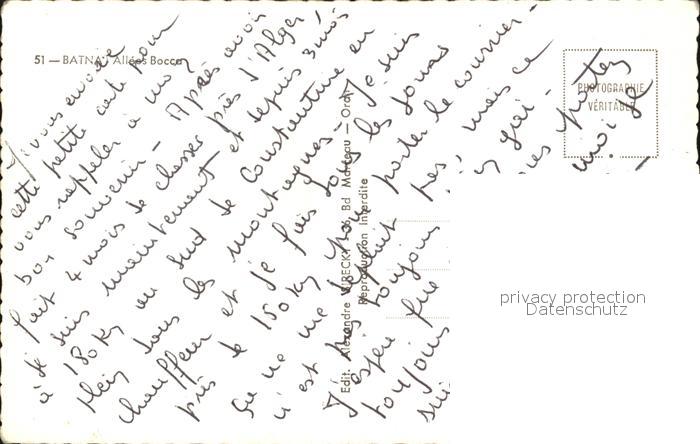 51 — BATNA - Allées Bocca
PHOTOGRAPHIE
VÉRITABLE
Edit. Alexandre WIRECKY, 36, Bd Marceau - Oran
Reproduction Interdite
Je vous envoie
cette petite carte pour
vous rappeler à mon
bon souvenir - Après avoir
fait 4 mois de classes près d'Alger
je suis maintenant et depuis 3 mois
à 180 km au sud de Constantine en
plein dans les montagnes - Je suis
chauffeur et je fais tous les jours
près de 150 km pour porter le courrier -
ça ne me déplait pas, mais ce
n'est pas toujours gai -
J'espère que
toujours
portez
moi je
suis
privacy protection
Datenschutz